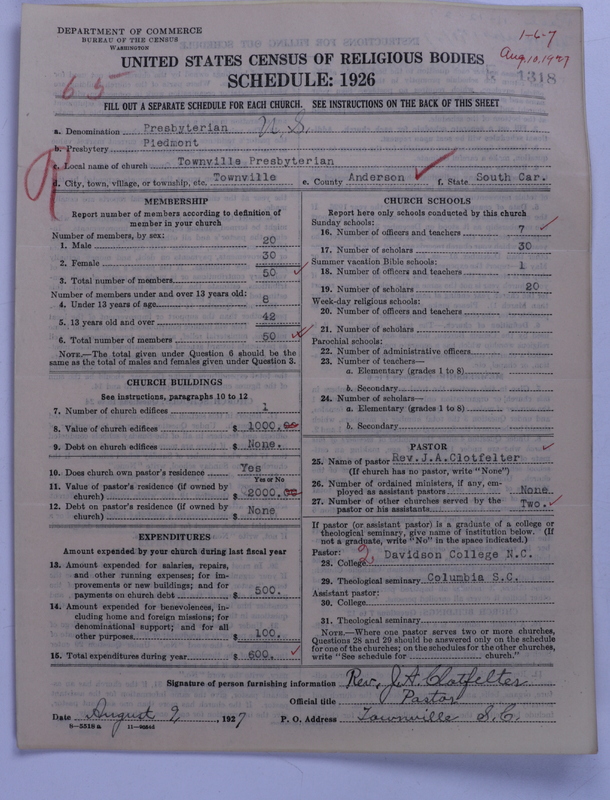 DEPARTMENT OF COMMERCE
BUREAU OF THE CENSUS
WASHINGTON
1-6-7
Aug. 10, 1927
UNITED STATES CENSUS OF RELIGIOUS BODIES
1318
SCHEDULE: 1926
65
FILL OUT A SEPARATE SCHEDULE FOR EACH CHURCH. SEE INSTRUCTIONS ON THE BACK OF THIS SHEET
a. Denomination Presbyterian U.S.
b. Presbytery Piedmont
c. Local name of church Townville Presbyterian
d. City, town, village, or township, etc. Townville e. County Anderson f. State South Car.
MEMBERSHIP
Report number of members according to definition of
member in your church
Number of members, by sex:
1. Male 20
2. Female 30
3. Total number of members 50
Number of members under and over 13 years old:
4. Under 13 years of age 8
5. 13 years old and over 42
6. Total number of members 50
NOTE.—The total given under Question 6 should be
same as the total of males and females given under Question 3.
CHURCH BUILDINGS
See instructions, paragraphs 10 to 12
7. Number of church edifices 1
8. Value of church edifices $ 1000.00
9. Debt on church edifices $ None.
10. Does church own pastor's residence Yes
Yes or No
11. Value of pastor's residence (if owned by
church) $ 2000.00
12. Debt on pastor's residence (if owned by
church) $ None
EXPENDITURES
Amount expended by your church during last fiscal year
13. Amount expended for salaries, repairs,
and other running expenses; for im-
provements or new buildings; and for
payments on church debt $ 500.
14. Amount expended for benevolences, in-
cluding home and foreign missions; for
denominational support; and for all
other purposes $ 100.
15. Total expenditures during year $ 600.
CHURCH SCHOOLS
Report here only schools conducted by this church
Sunday schools:
16. Number of officers and teachers 7
17. Number of scholars 30
Summer vacation Bible schools:
18. Number of officers and teachers 1
19. Number of scholars 20
Week-day religious schools:
20. Number of officers and teachers
21. Number of scholars
Parochial schools:
22. Number of administrative officers
23. Number of teachers—
a. Elementary (grades 1 to 8)
b. Secondary
24. Number of scholars—
a. Elementary (grades 1 to 8)
b. Secondary
PASTOR
25. Name of pastor Rev.J.A.Clotfelter
(If church has no pastor, write "None")
26. Number of ordained ministers, if any, em-
ployed as assistant pastors None
27. Number of other churches served by the
pastor or his assistants Two.
If pastor (or assistant pastor) is a graduate of a college or
theological seminary, give name of institution below. (If
not a graduate, write "No" in the space indicated.)
Pastor:
28. College 2 Davidson College N.C.
29. Theological seminary Columbia S.C.
Assistant pastor:
30. College
31. Theological seminary
NOTE.—Where one pastor serves two or more churches,
Questions 28 and 29 should be answered only on the schedule
for one of the churches; on the schedules for the other churches,
write "See schedule for church."
Signature of person furnishing information Rev. J. A. Clotfelter
Official title Pastor
Date August 9, 1927 P. O. Address Townville S.C.
8-5518a